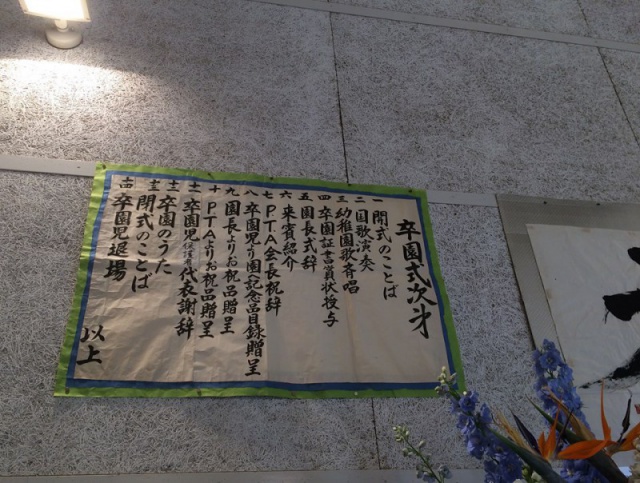 卒園式次才
一 開式のことば
二 国歌演奏
三 幼稚園歌斉唱
四 卒園証書賞状授与
五 園長式辞
六 来賓紹介
七 PTA会長祝辞
八 卒園児より園記念品目録贈呈
九 園長よりお祝品贈呈
十 PTAよりお祝品贈呈
十一 卒園児保護者代表謝辞
十二 卒園のうた
十三 閉式のことば
十四 卒園児退場
以上